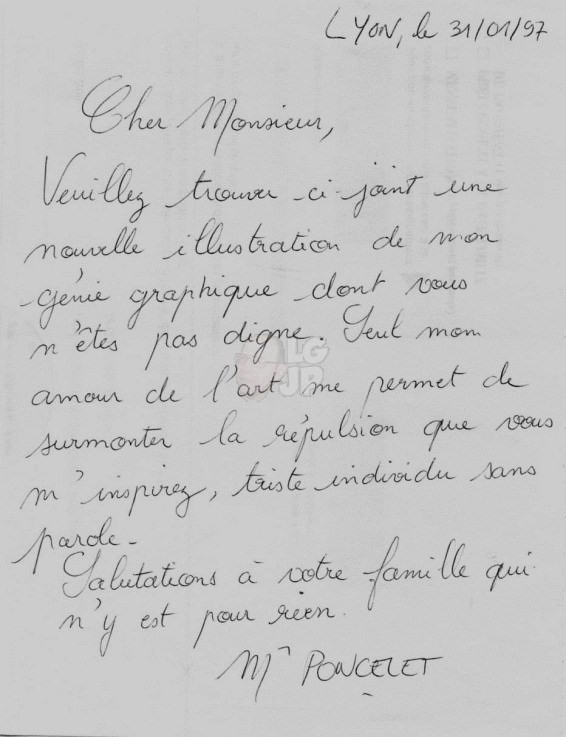 LYON, le 31/01/97
Cher Monsieur,
Veuillez trouver ci-joint une
nouvelle illustration de mon
génie graphique dont vous
n'êtes pas digne. Seul mon
amour de l'art me permet de
surmonter la répulsion que vous
m'inspirez, triste individu sans
parole.
Salutations à votre famille qui
n'y est pour rien.
Mr PONCELET
LG
JR